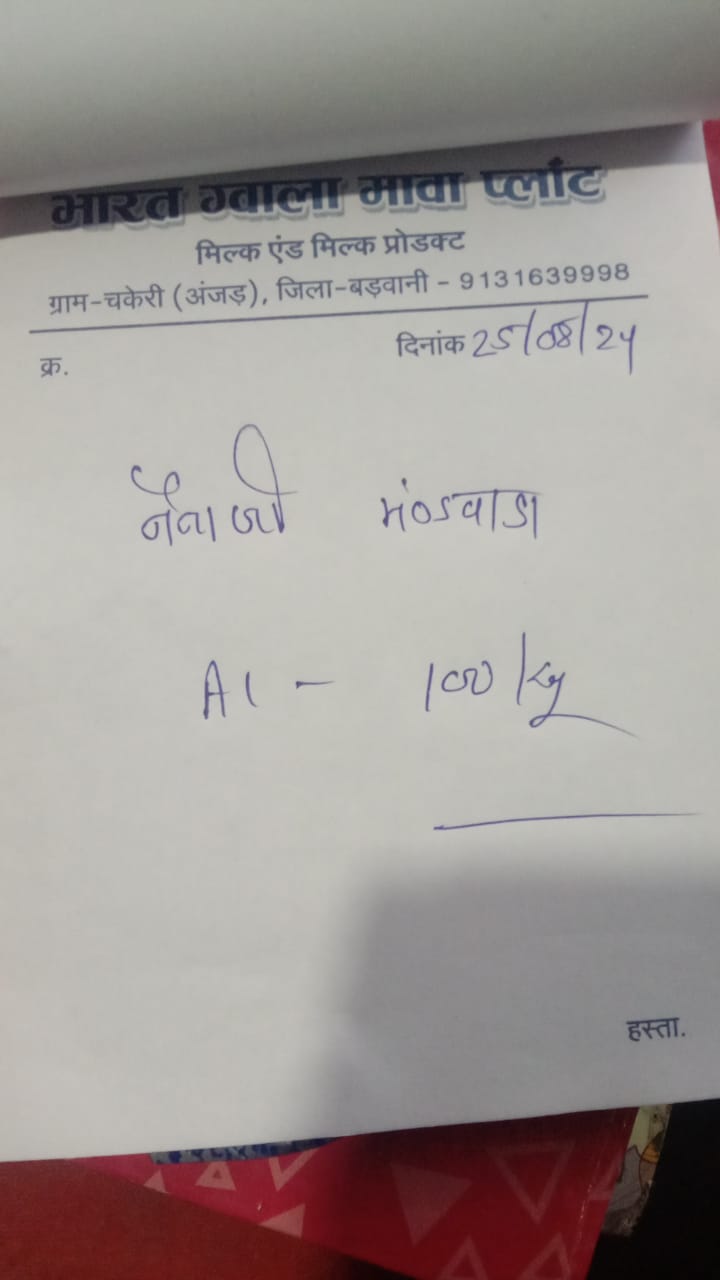 भारत ग्वाला मावा प्लांट
मिल्क एंड मिल्क प्रोडक्ट
ग्राम-चकेरी (अंजड़), जिला-बड़वानी - 9131639998
क्र. दिनांक 25/08/24
नैनाजी मंडवाडा
A1 - 100 kg
हस्ता.